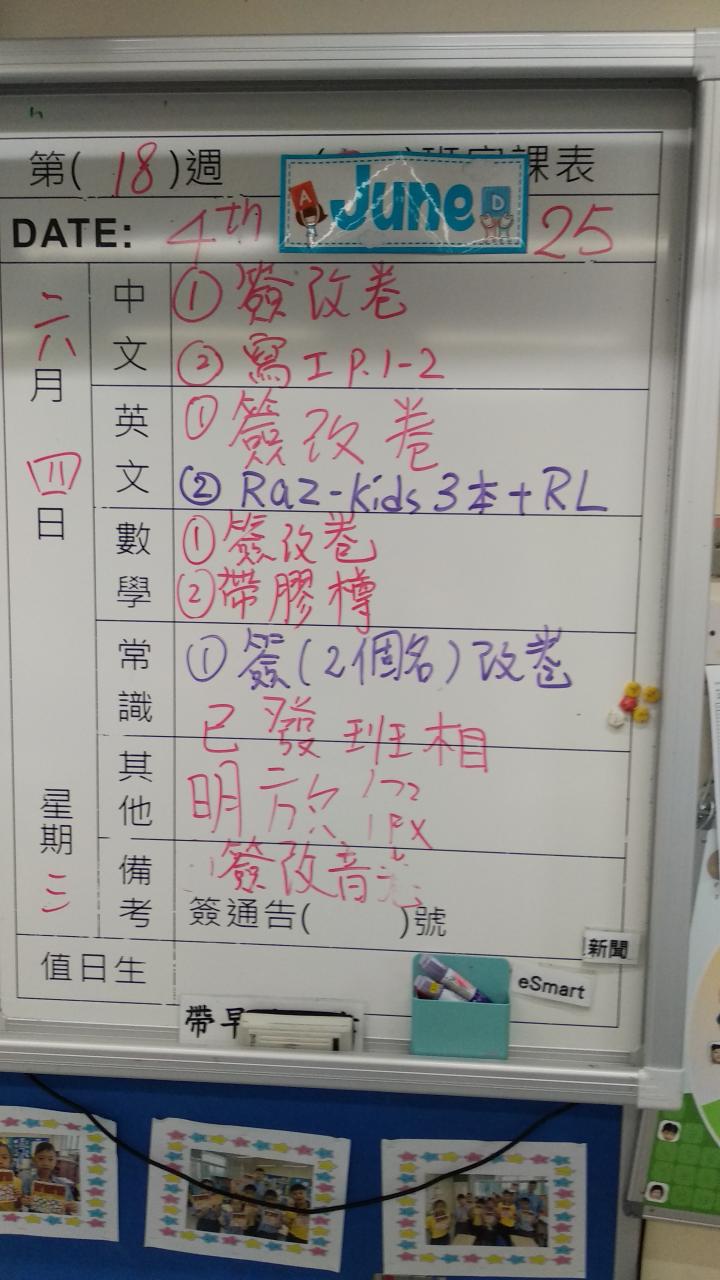 第( 18 )週 課表
DATE: 4th June 25
六月
四日
星期三
中文
① 簽改卷
② 寫工 P.1-2
英文
① 簽改卷
② Raz-Kids 3本+RL
數學
① 簽改卷
② 帶膠樽
常識
① 簽(2個名)改卷
已發班相
其他
明
備考
簽改音
簽通告( )號
值日生
新聞
eSmart
帶早